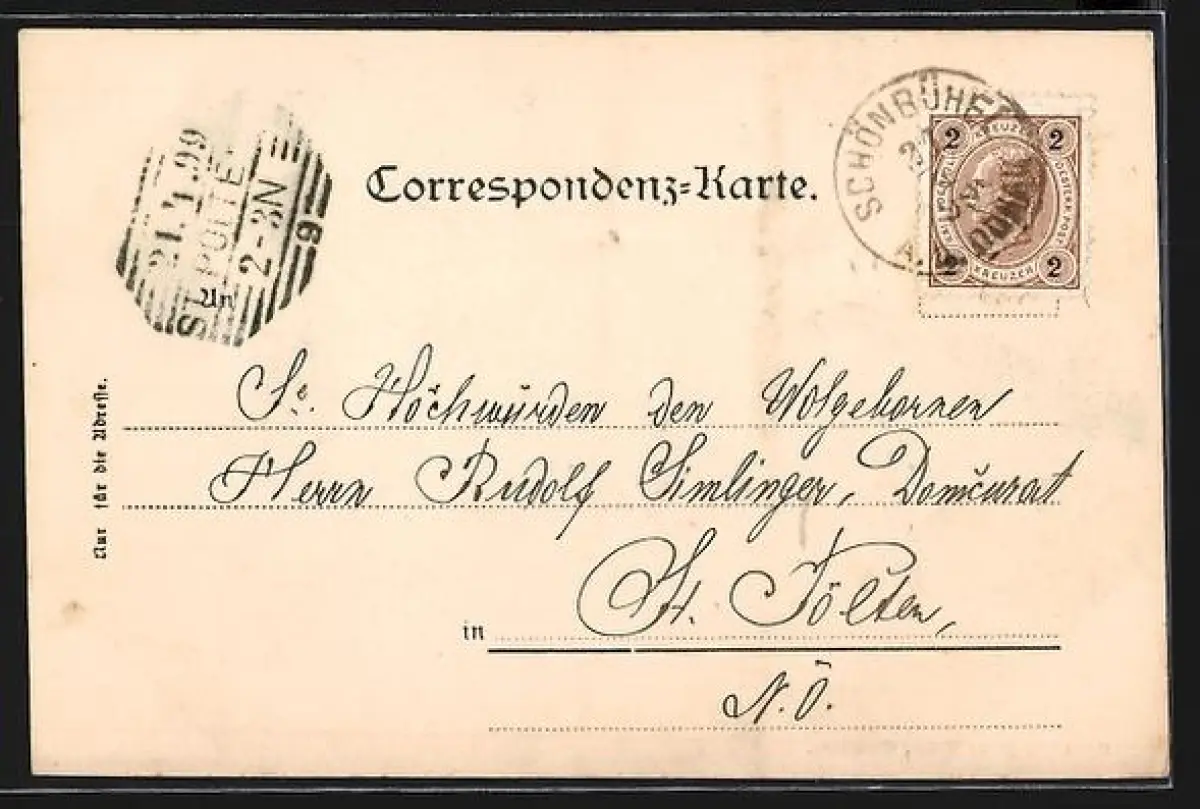 Correspondenz-Karte.
SCHÖNBÜHEL
A. D. DONAU
2 KREUZER 2
2 KREUZER 2
21.4.99
ST. PÖLTEN
2-3N
9
An
Sr. Höchwürden den Wolgebornen
Herrn Rudolf Simlinger, Domcurat
in St. Pölten,
N. Ö.
Nur für die Adresse.